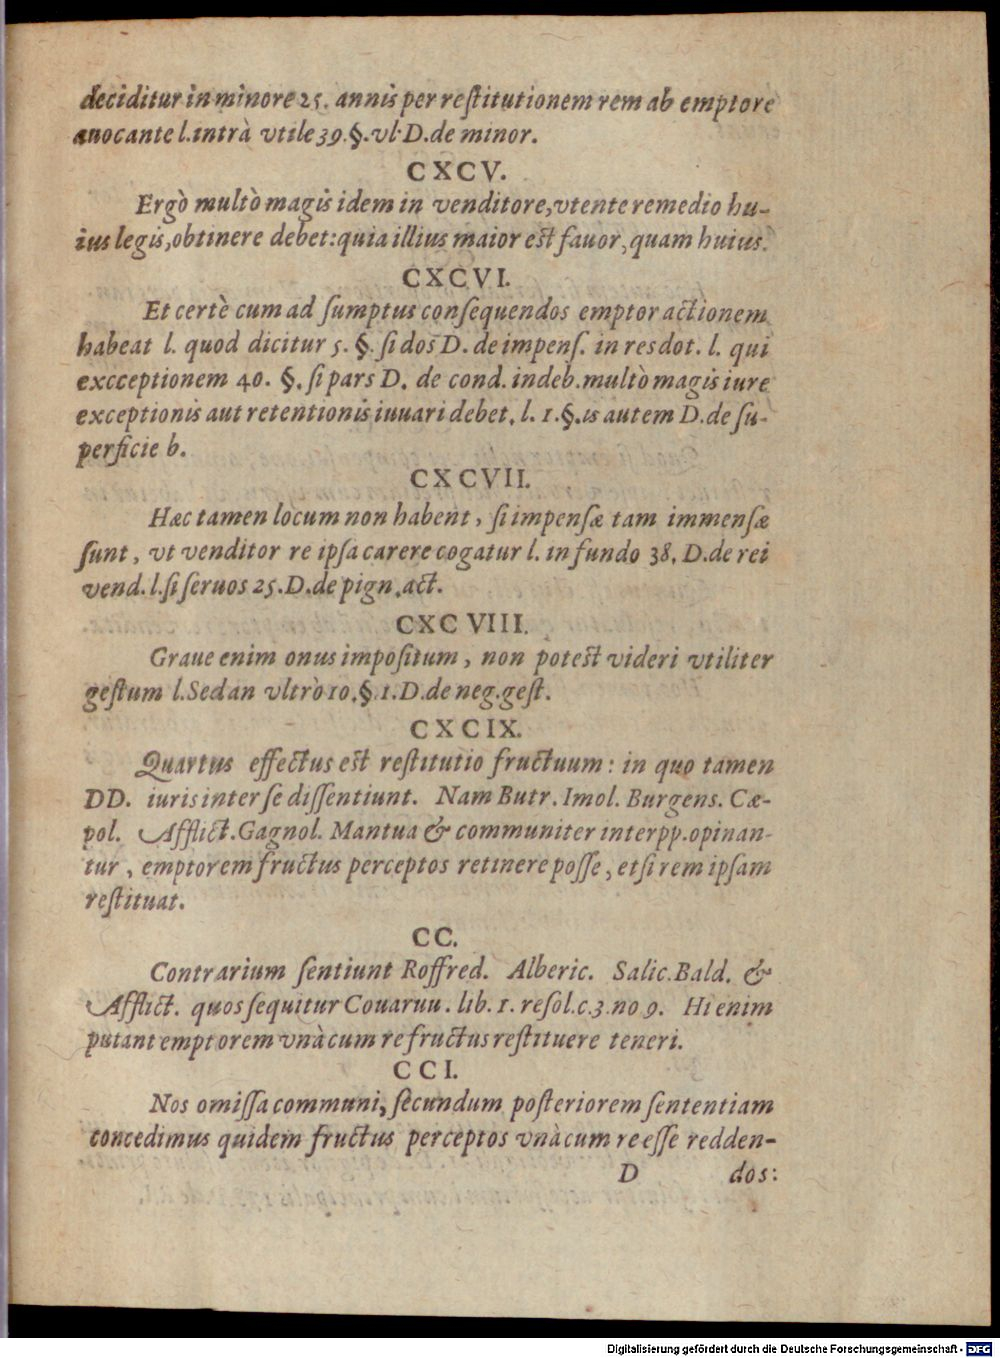 deciditur in minore 25. annis per reſtitutionem rem ab emptore
auocante l. intrà vtile 39. §. vl. D. de minor.
CXCV.
Ergò multò magis idem in venditore, vtente remedio hu-
ius legis, obtinere debet: quia illius maior est fauor, quam huius.
CXCVI.
Et certè cum ad ſumptus conſequendos emptor actionem
habeat l. quod dicitur 5. §. ſi dos D. de impenſ. in res dot. l. qui
excceptionem 40. §. ſi pars D. de cond. indeb. multò magis iure
exceptionis aut retentionis iuuari debet. l. 1. §. is autem D. de ſu-
perficie b.
CXCVII.
Hæc tamen locum non habent, ſi impenſæ tam immenſæ
ſunt, vt venditor re ipſa carere cogatur l. in fundo 38. D. de rei
vend. l. ſi ſeruos 25. D. de pign. act.
CXCVIII.
Graue enim onus impoſitum, non potest videri vtiliter
geſtum l. Sed an vltrò 10. §. 1. D. de neg. geſt.
CXCIX.
Quartus effectus est reſtitutio fructuum: in quo tamen
DD. iuris inter ſe diſſentiunt. Nam Butr. Imol. Burgens. Cæ-
pol. Afflict. Gagnol. Mantua & communiter interpp. opinan-
tur, emptorem fructus perceptos retinere poſſe, etſi rem ipſam
reſtituat.
CC.
Contrarium ſentiunt Roffred. Alberic. Salic. Bald. &
Afflict. quos ſequitur Couaruu. lib. 1. reſol. c. 3. no 9. Hi enim
putant emptorem vnà cum re fructus reſtituere teneri.
CCI.
Nos omiſſa communi, ſecundum poſteriorem ſententiam
concedimus quidem fructus perceptos vnà cum re eſſe redden-
D dos:
Digitalisierung gefördert durch die Deutsche Forschungsgemeinschaft - DFG